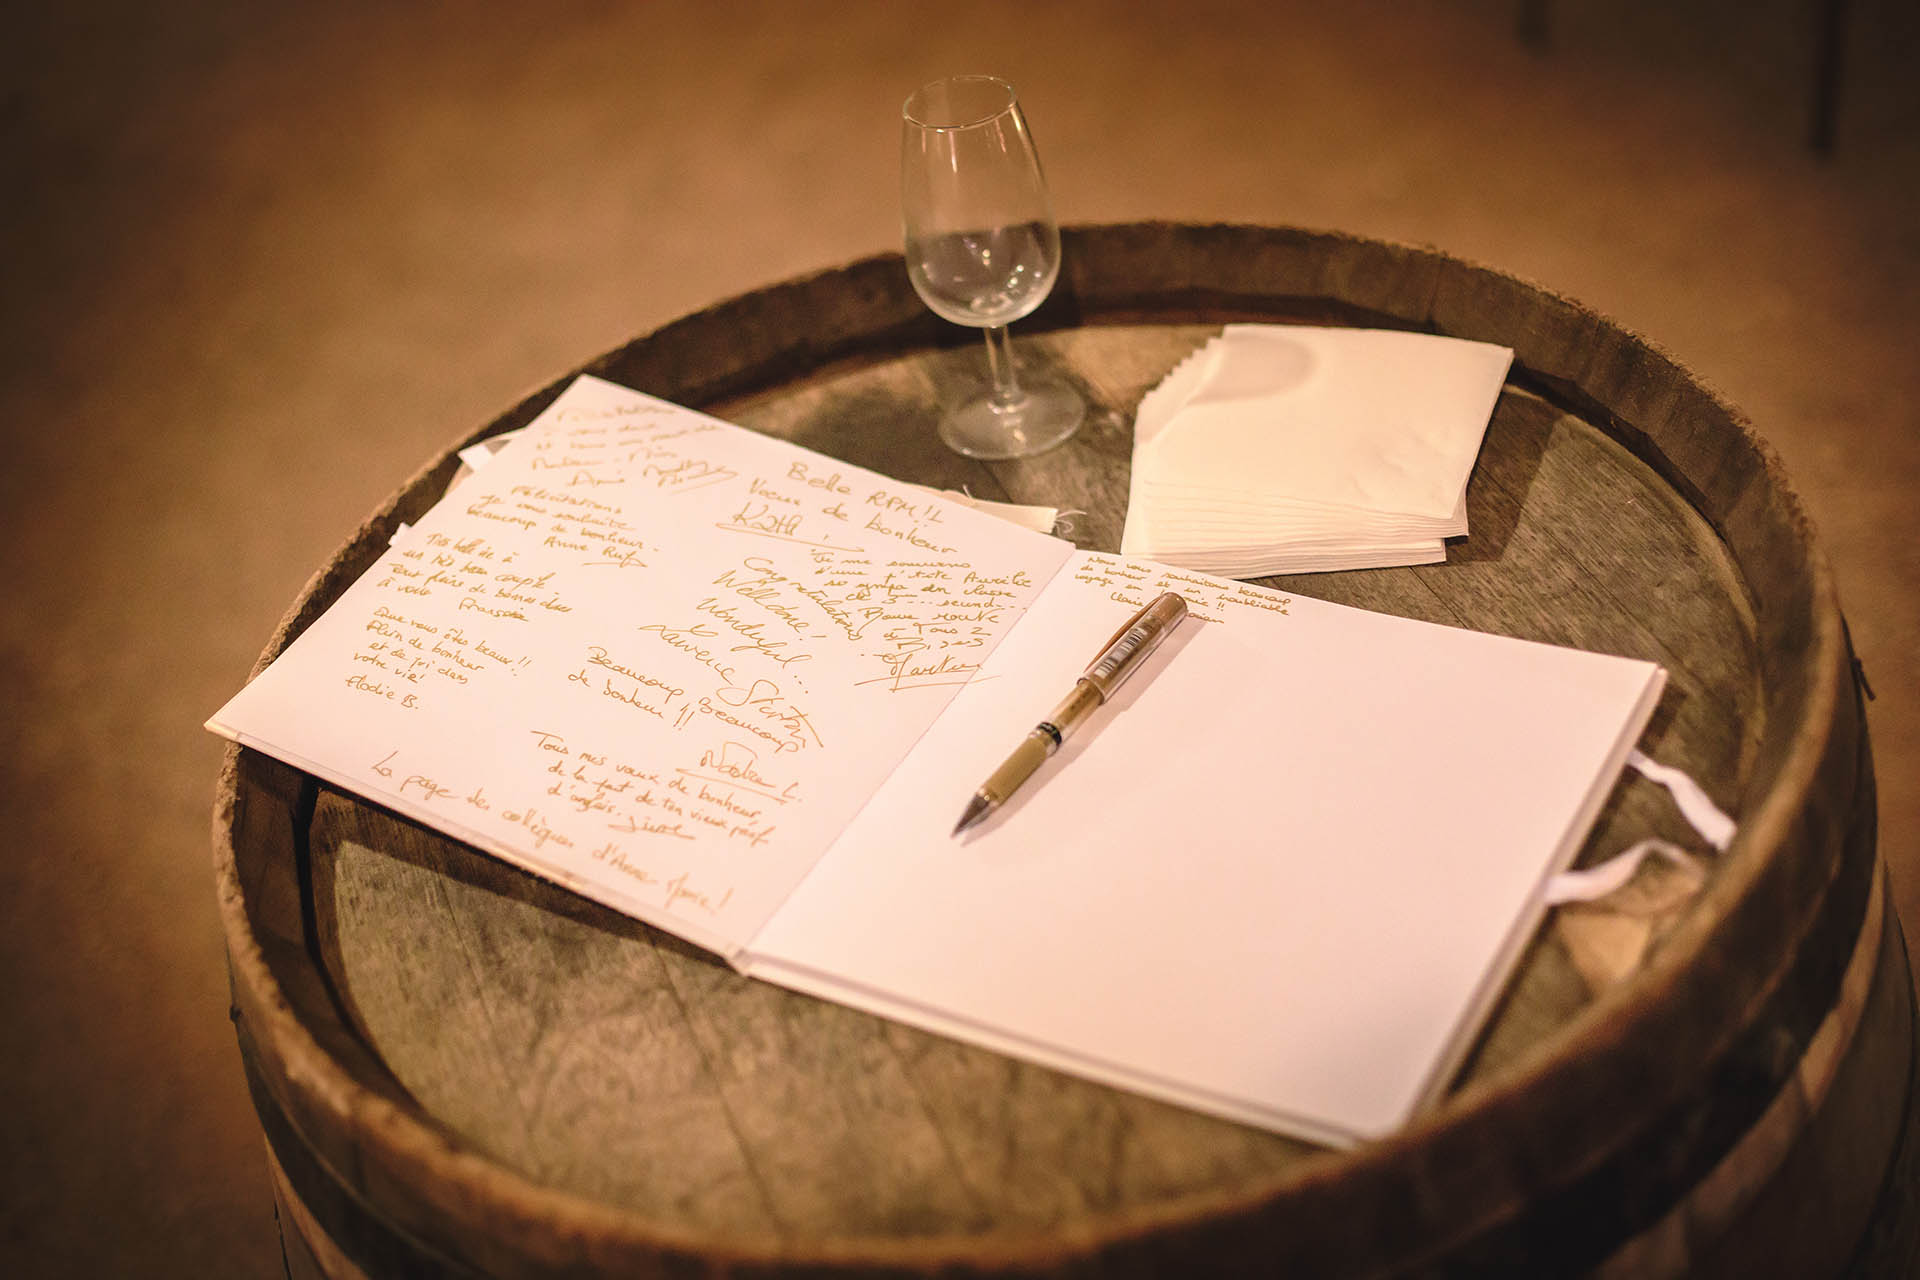 à vous deux
Félicitations
Je vous souhaite
beaucoup de bonheur.
Anne Ruf
Très belle vie à
un très beau couple
Tout plein de bonnes choses
à vous
Françoise
Que vous êtes beaux !!
Plein de bonheur
et de joie dans
votre vie
Elodie B.
Belle RPM !!
Voeux de bonheur
Kathi
Je me souviens
d'une p'tite Aurélie
sympa en classe
de 5... second...
A Tous 2
Bises
Congratulations
Welldone!
Wonderful...
Beaucoup Beaucoup
de bonheur !!
L.
Tous mes vœux de bonheur,
de la part de ton vieux prof
d'anglais.
La page des collègues d'Anne Marie!
Nous vous souhaitons beaucoup
de bonheur et un inoubliable
voyage en !!